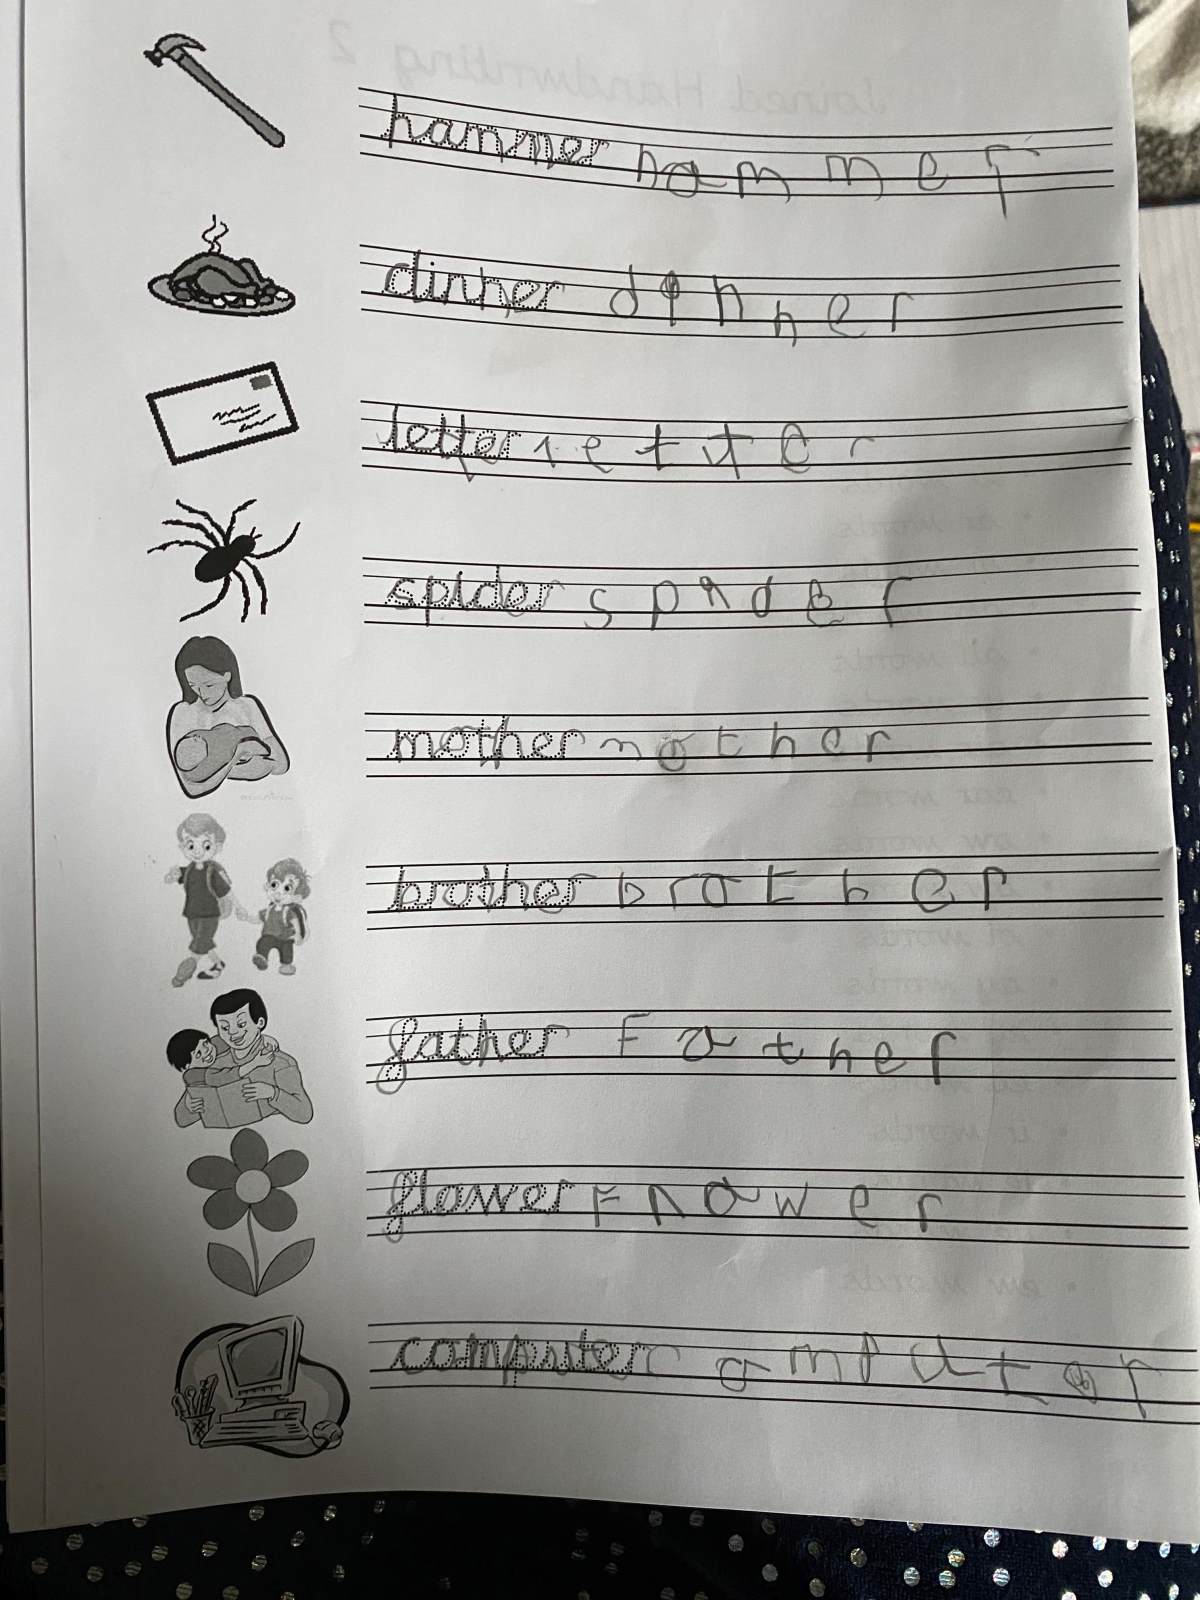 hammer hammer
dinner dinner
letter letter
spider spider
mother mother
brother brother
father Father
flower Flower
computer computer